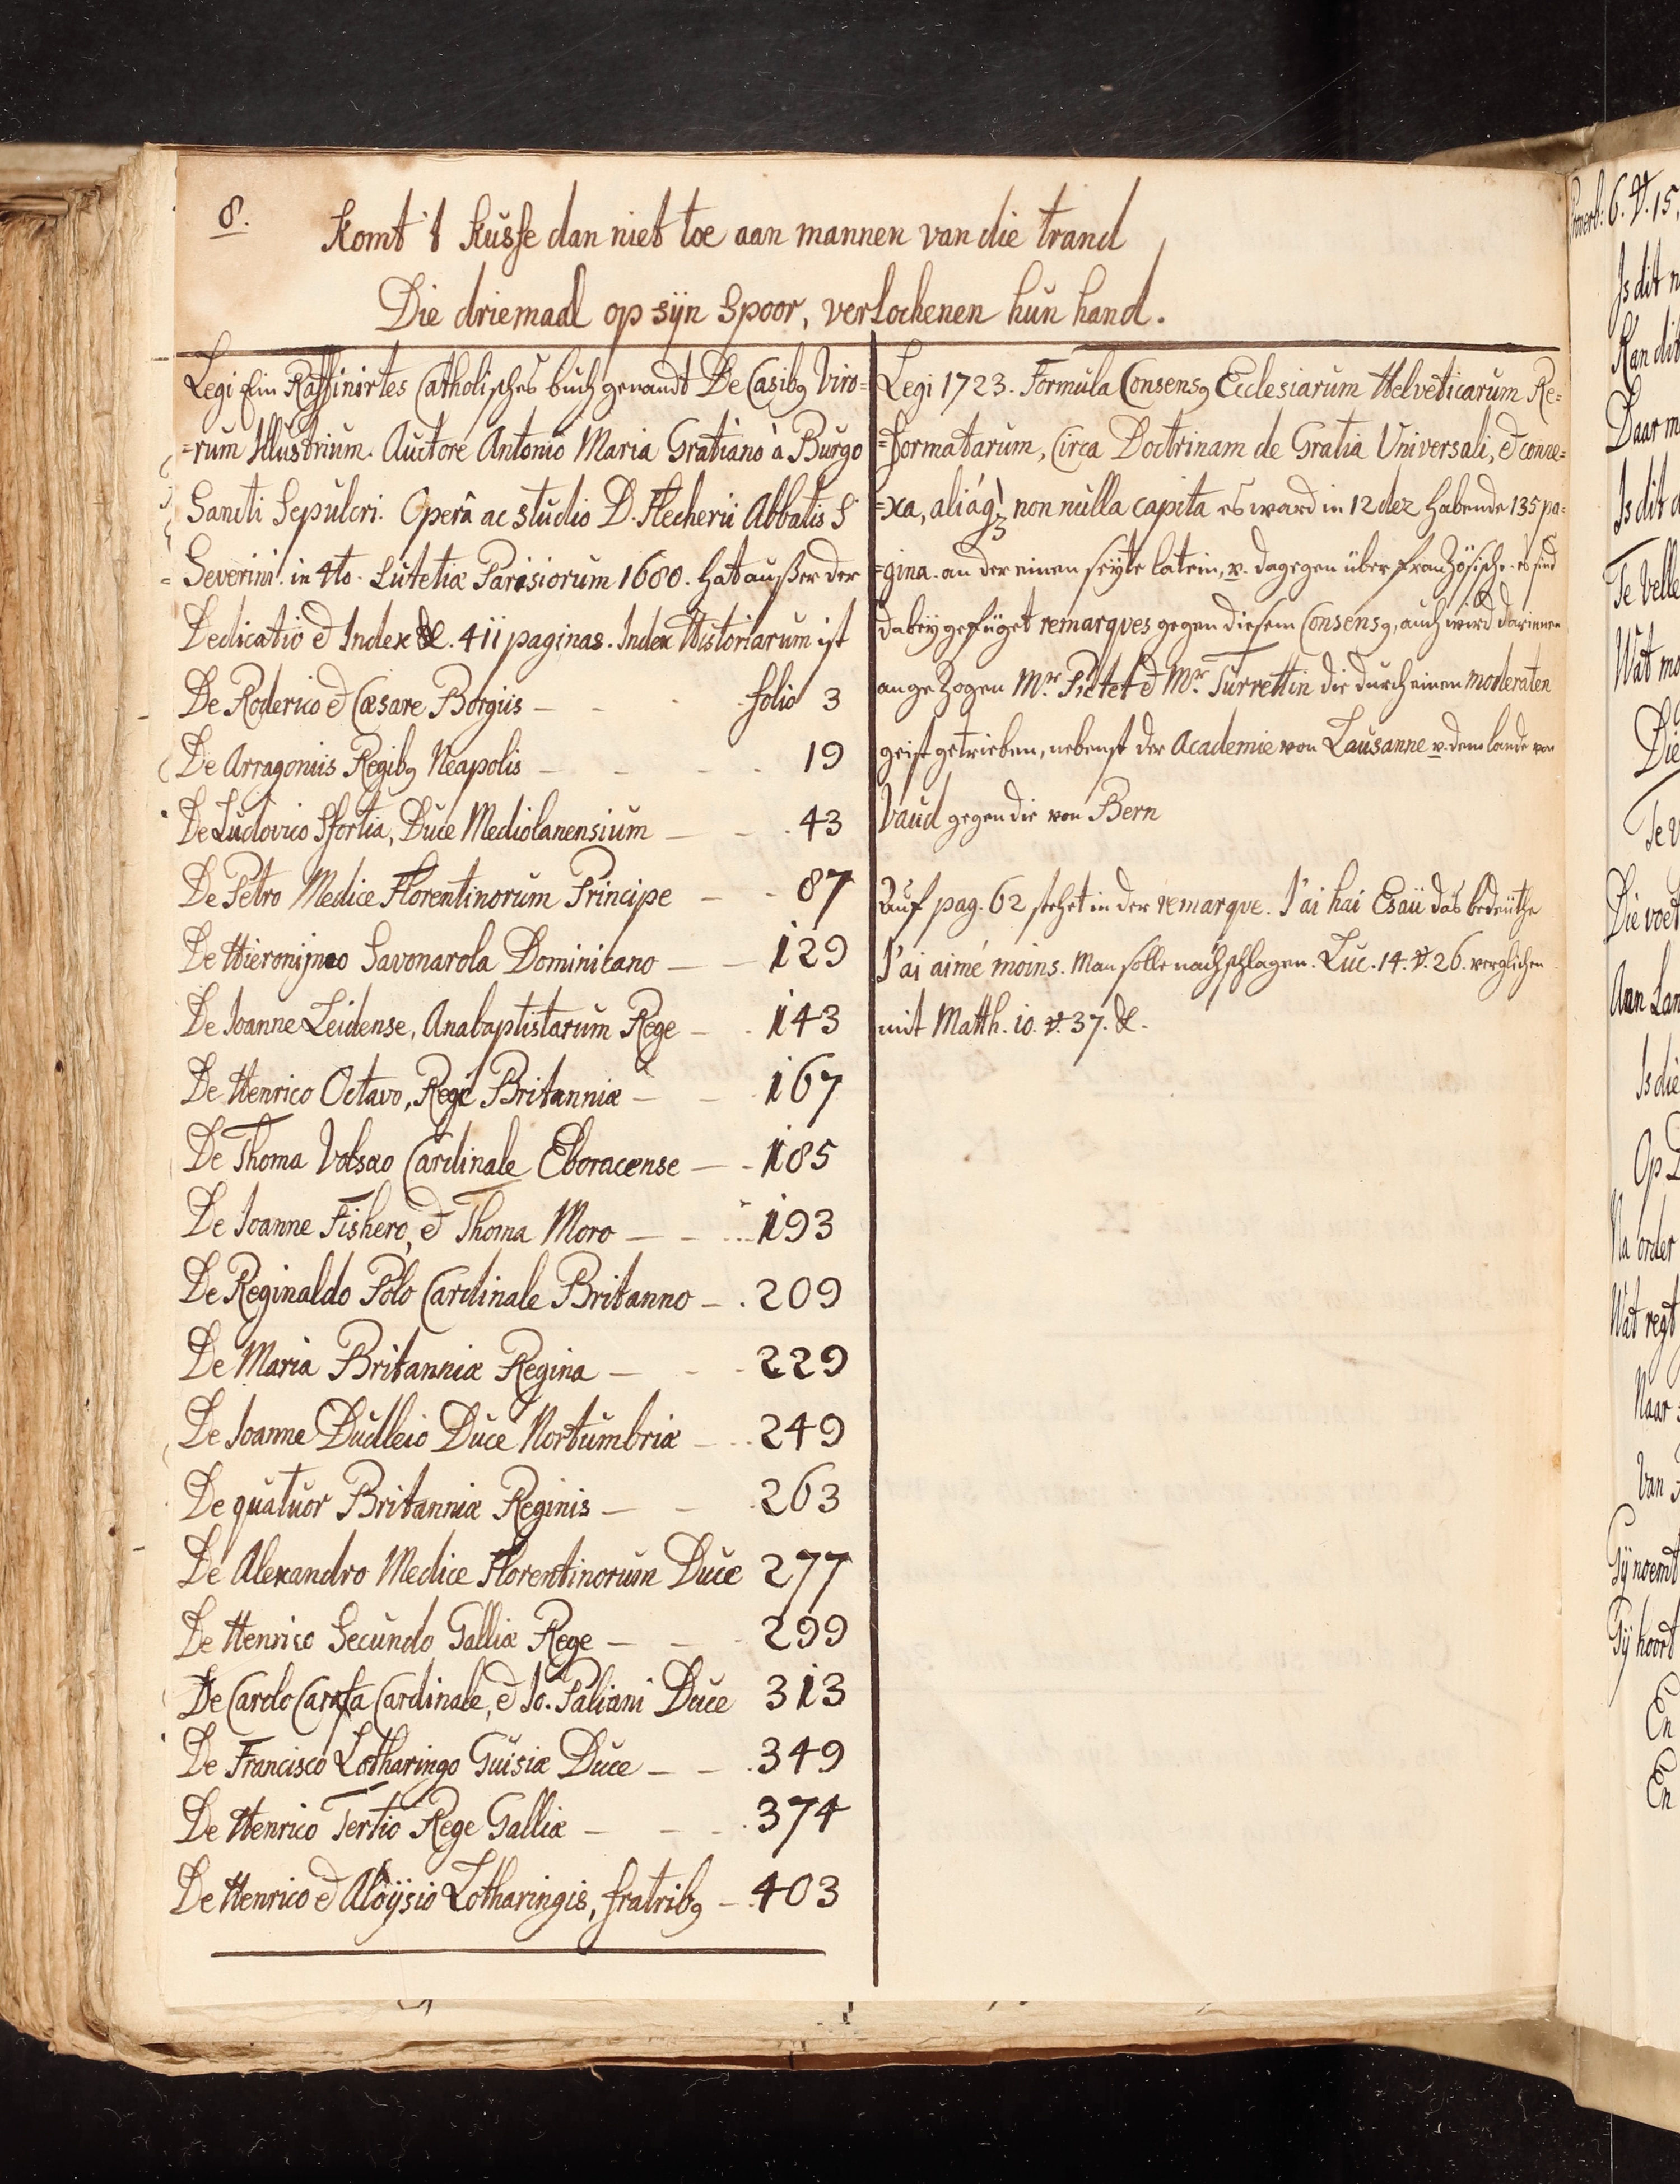 8.
Komt 't kusse dan niet toe aan mannen van die trand
Die driemaal op syn Spoor, verlochenen hun hand.
Legi Ein Raffinirtes Catholisches buch genandt De Casibꝯ Viro=
=rum Illustrium. Auctore Antonio Maria Gratiano à Burgo
Sancti Sepulcri. Operâ ac studio D. Flecherii Abbatis S
= Severini. in 4to. Lutetiæ Parisiorum 1680. hat außer der
Dedicatio et Index &c. 411 paginas. Index Historiarum ist
De Roderico et Cæsare Borgiis — folio 3
De Arragoniis Regibꝯ Neapolis — 19
De Ludovico Sfortia, Duce Mediolanensium — 43
De Petro Medice Florentinorum Principe — 87
De Hieronijmo Savonarola Dominicano — 129
De Joanne Leidense, Anabaptistarum Rege — 143
De Henrico Octavo, Rege Britanniæ — 167
De Thoma Volsæo Cardinale Eboracense — 185
De Joanne Fishero, et Thoma Moro — 193
De Reginaldo Polo Cardinale Britanno — 209
De Maria Britanniæ Regina — 229
De Joanne Dudleio Duce Nortumbriæ — 249
De quatuor Britanniæ Reginis — 263
De Alexandro Medice Florentinorum Duce 277
De Henrico Secundo Galliæ Rege — 299
De Carolo Carafa Cardinale, et Jo. Paliani Duce 313
De Francisco Lotharingo Guisiæ Duce — 349
De Henrico Tertio Rege Galliæ — 374
De Henrico et Aloijsio Lotharingis, fratribꝯ — 403
Legi 1723. Formula Consensꝯ Ecclesiarum Helveticarum Re=
=formatarum, Circa Doctrinam de Gratia Universali, et conne=
=xa, aliáqꝫ non nulla capita es ward in 12 dez habende 135 pa=
=gina. an der einen seyte latein, v. dagegen über französisch. es sind
dabey gefüget remarques gegen diesem Consensꝯ, auch wird darinnen
angezogen Mr. Pictet et Mr. Turrettin die durch einen moderaten
geist getrieben, nebenst der Academie von Lausanne v. dem lande von
Vaud gegen die von Bern
Auf pag. 62 stehet in der remarque. J'ai hai Esaü das bedeüthe
J'ai aimé moins. Man solle nachschlagen. Luc. 14. v. 26. verglichen
mit Matth. 10. v. 37. &c.
6. v. 15,
Is dit
Kan dit
Daar
Is dit
Te Velle
Wat
Die
Te
Die voet
Aan
Is die
Op
Na order
Wat regt
Naar
Van
Gij noemt
Gij hoort
En
En